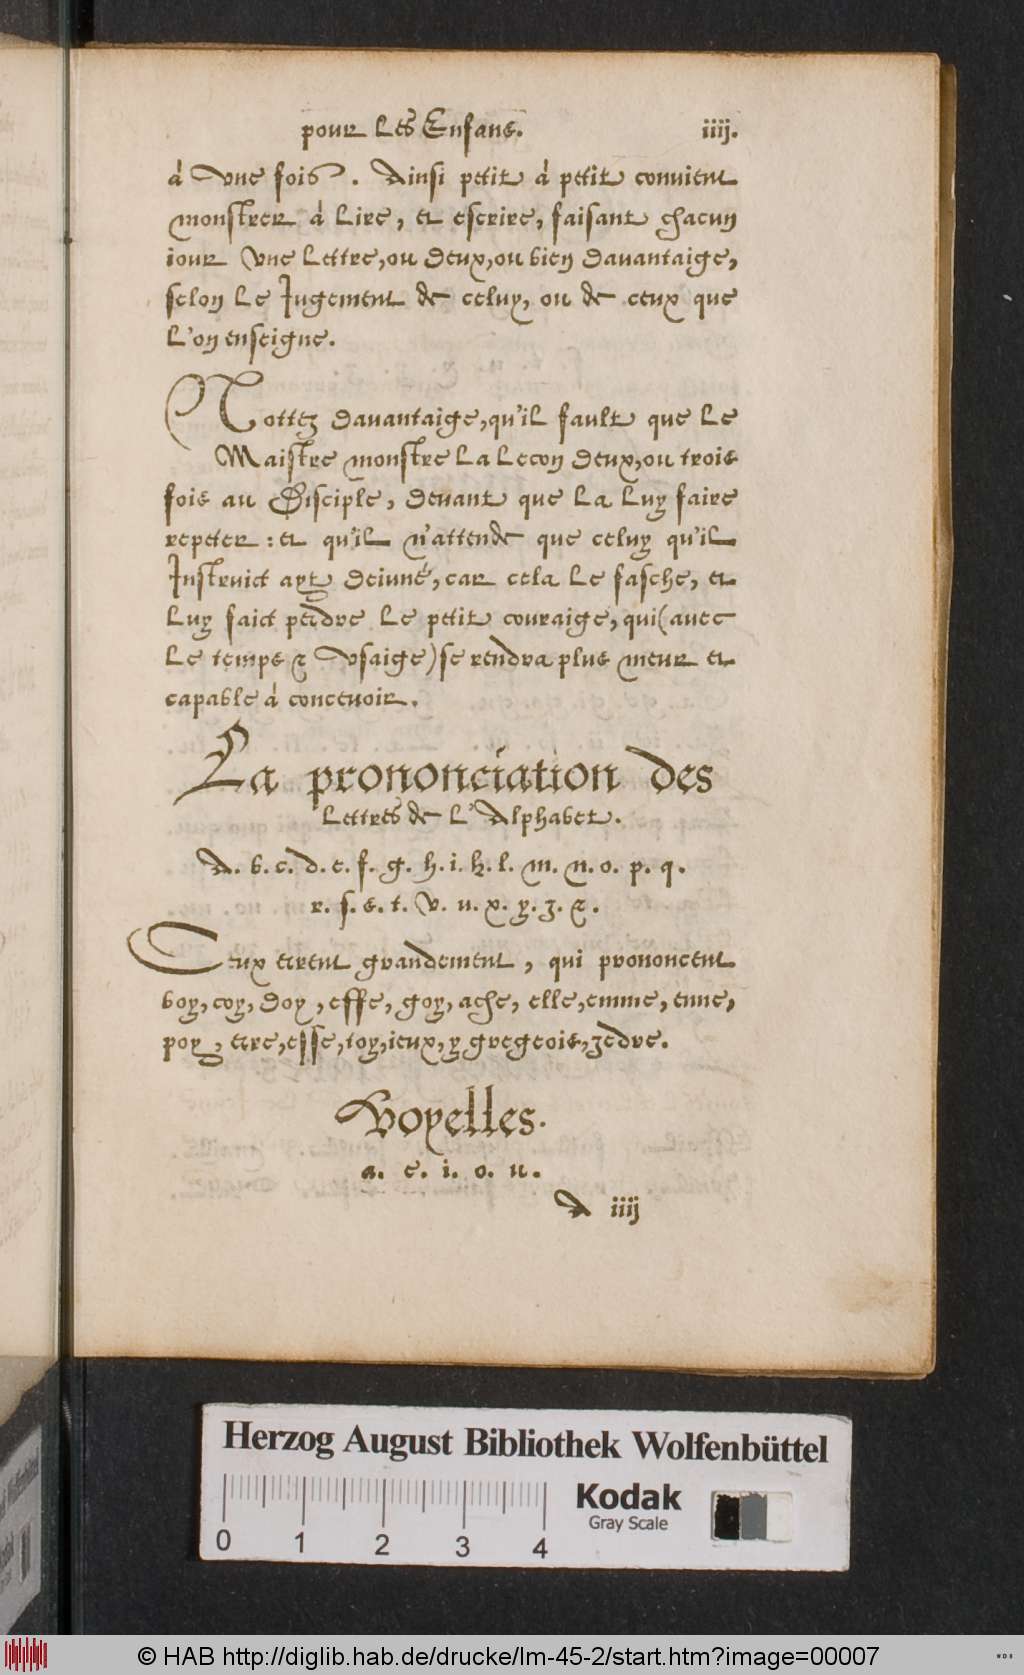 pour les Enfans.
iiij.
à vne fois. Ainsi petit à petit conuient
monstrer à lire, et escrire, faisant chacun
iour vne lettre, ou deux, ou bien dauantaige,
selon le Iugement de celuy, ou de ceux que
l'on enseigne.
Nottez dauantaige, qu'il fault que le
Maistre monstre la lecon deux, ou trois
fois au Disciple, deuant que la luy faire
repeter: et qu'il n'attende que celuy qu'il
Instruict ayt deiuné, car cela le fasche, et
luy faict perdre le petit couraige, qui (auec
le temps & vsaige) se rendra plus meur et
capable à conceuoir.
La prononciation des
lettres de l'Alphabet.
A. b. c. d. e. f. g. h. i. k. l. m. n. o. p. q.
r. s. s. t. v. u. x. y. z. &.
Ceux errent grandement, qui prononcent
boy, coy, doy, effe, goy, ache, elle, emme, enne,
poy, erre, esse, toy, ieux, y gregeois, zedre.
Voyelles.
a. e. i. o. u.
A iiij
Herzog August Bibliothek Wolfenbüttel
0 1 2 3 4
Kodak
Gray Scale
© HAB http://diglib.hab.de/drucke/lm-45-2/start.htm?image=00007